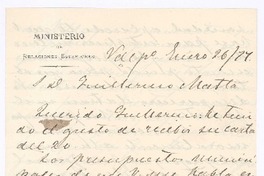 MINISTERIO
DE
RELACIONES EXTERIORES
Valpo. Enero 26/77
S. D. Guillermo Matta
Querido Guillermo: he teni
do el gusto de recibir su carta
del 20
Los presupuestos
de que V. me habla